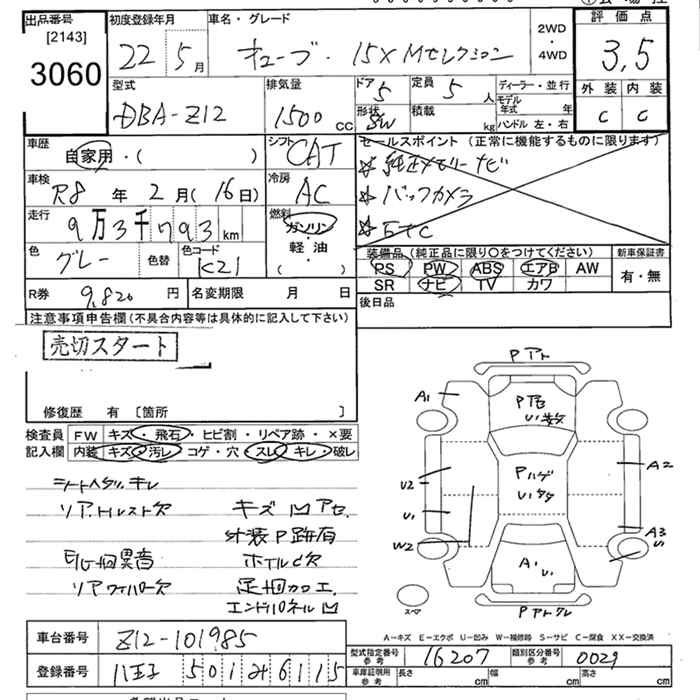 出品番号 初度登録年月 車名・グレード 2WD・4WD 評価点
[2143]
3060 22 5月 キューブ 15X Mセレクション 3,5
型式 排気量 ドア 定員 ディーラー・並行 外装 内装
DBA-Z12 1500cc 5 5人 モデル年式 年 C C
形状 SW 積載 kg ハンドル 左・右
車歴 自家用・( ) シフト CAT セールスポイント (正常に機能するものに限ります)
☆ 純正メモリーナビ
車検 R8年2月(16日) 冷房 AC ☆ バックカメラ
走行 9万3千793km 燃料 ガソリン ☆ ETC
軽・油
( ・ )
色 グレー 色替 色コード K21
装備品 (純正品に限り〇をつけてください) 新車保証書
PS PW ABS エアB AW 有・無
SR ナビ TV カワ
R券 9,820円 名変期限 月 日 後日品
注意事項申告欄(不具合内容等は具体的に記入して下さい)
売切スタート
修復歴 有 〔箇所 〕
検査員記入欄 FW キズ・飛石・ヒビ割・リペア跡・×要
内装 キズ・汚レ コゲ・穴 スレ キレ・破レ
シートヘタリ、キレ
リアトルスト欠 キズ 凹 アセ
外装P跡有
E/G回異音 ホイルC欠
リアワイパー欠 足回カロエ
エンドパネル凹
Pアト
A1 Pアセ
U、数
A2
U2 Pハゲ
U、タタ
U1
A3
W2 U1
A1 U、
スペア Pアトクレ
A-キズ E-エクボ U-凹み W-補修跡 S-サビ C-腐食 XX-交換済
車台番号 Z12-101985
型式指定番号 参考 16207 類別区分番号 参考 0029
登録番号 八王子 501 み 6115
車庫証明用 参考 長さ cm 幅 cm 高さ cm